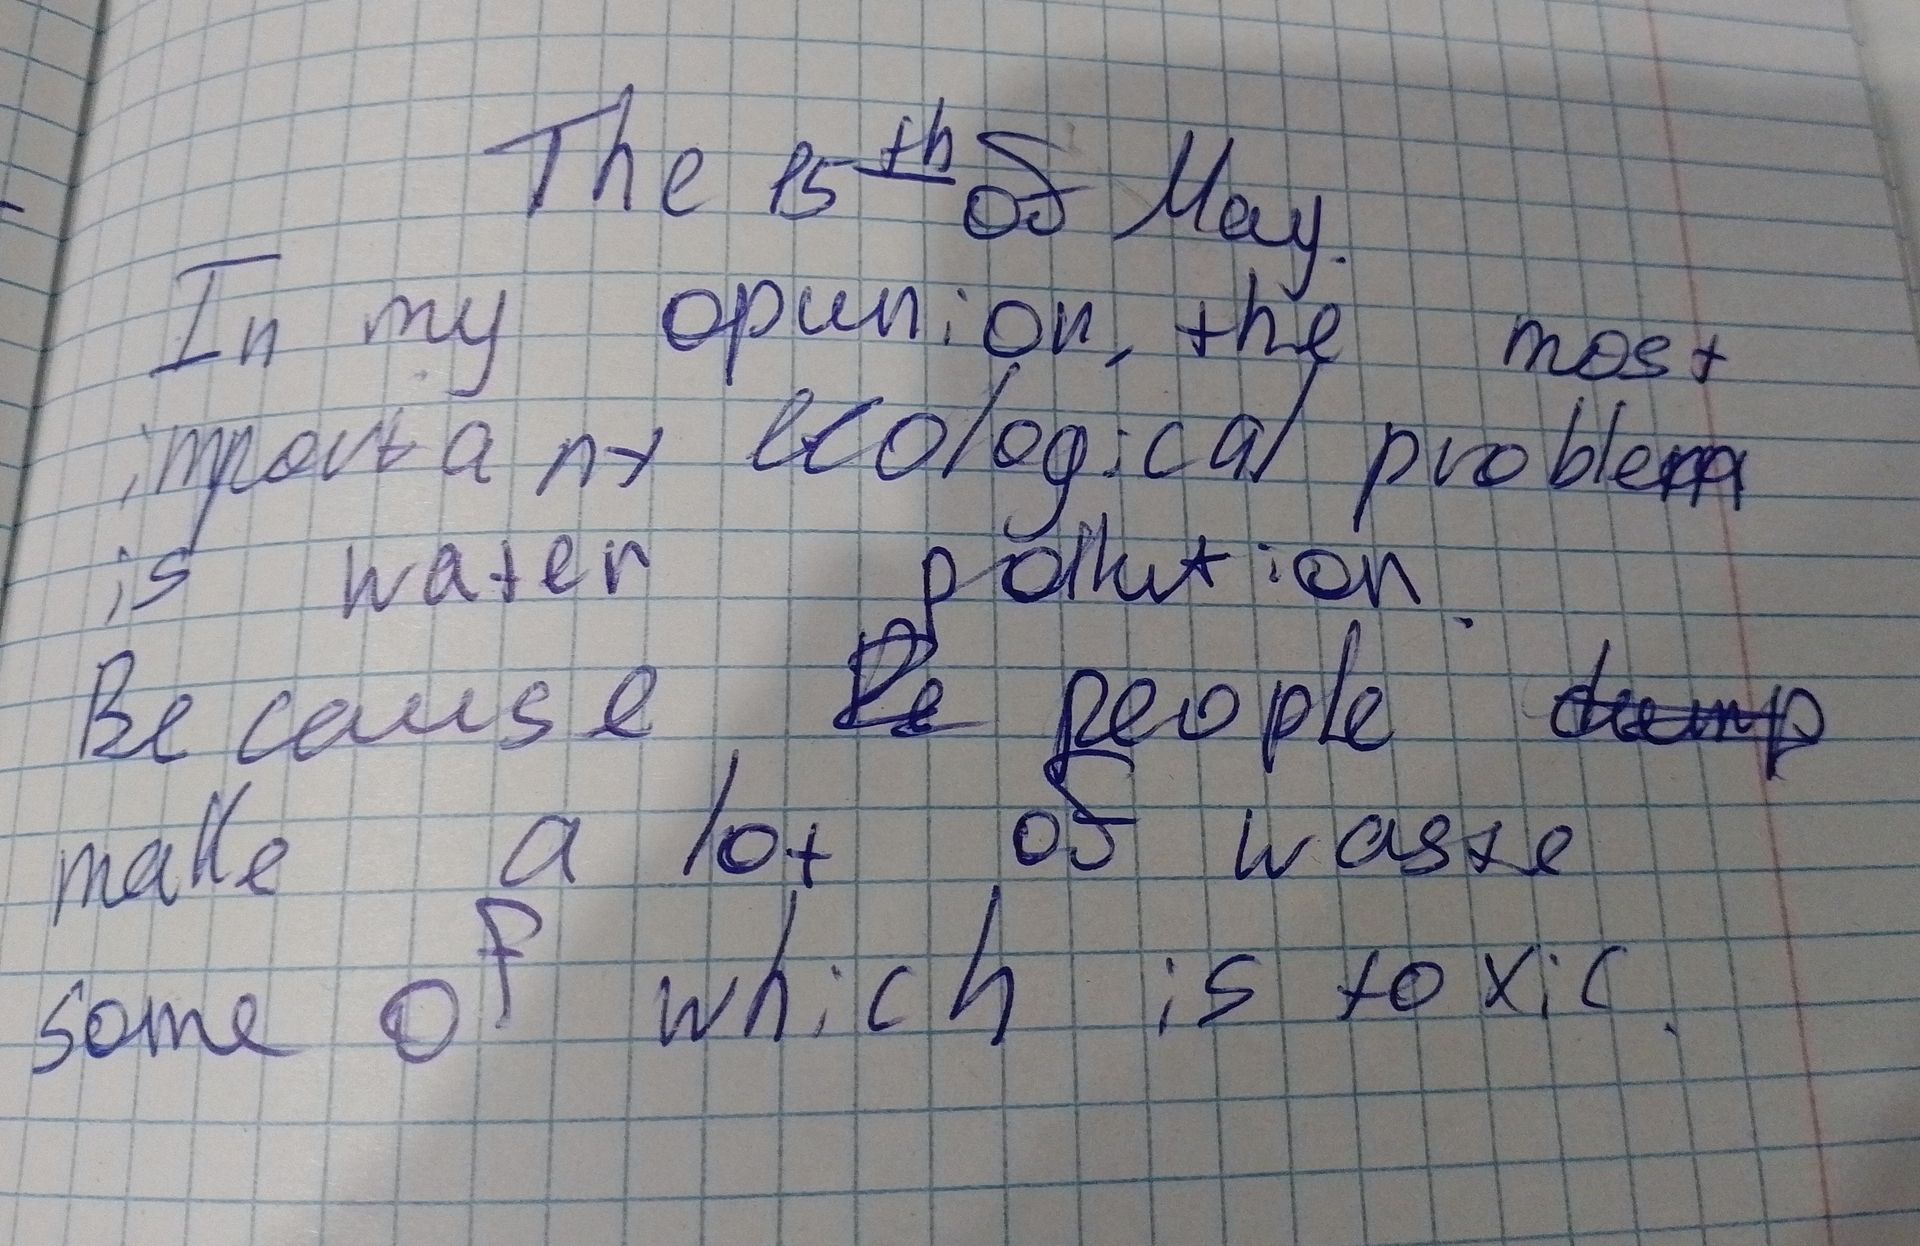 The 15th of May.
In my opunion, the most
important ecological problem
is water pollution.
Because Pe people dump
make a lot of waste
some of which is toxic.